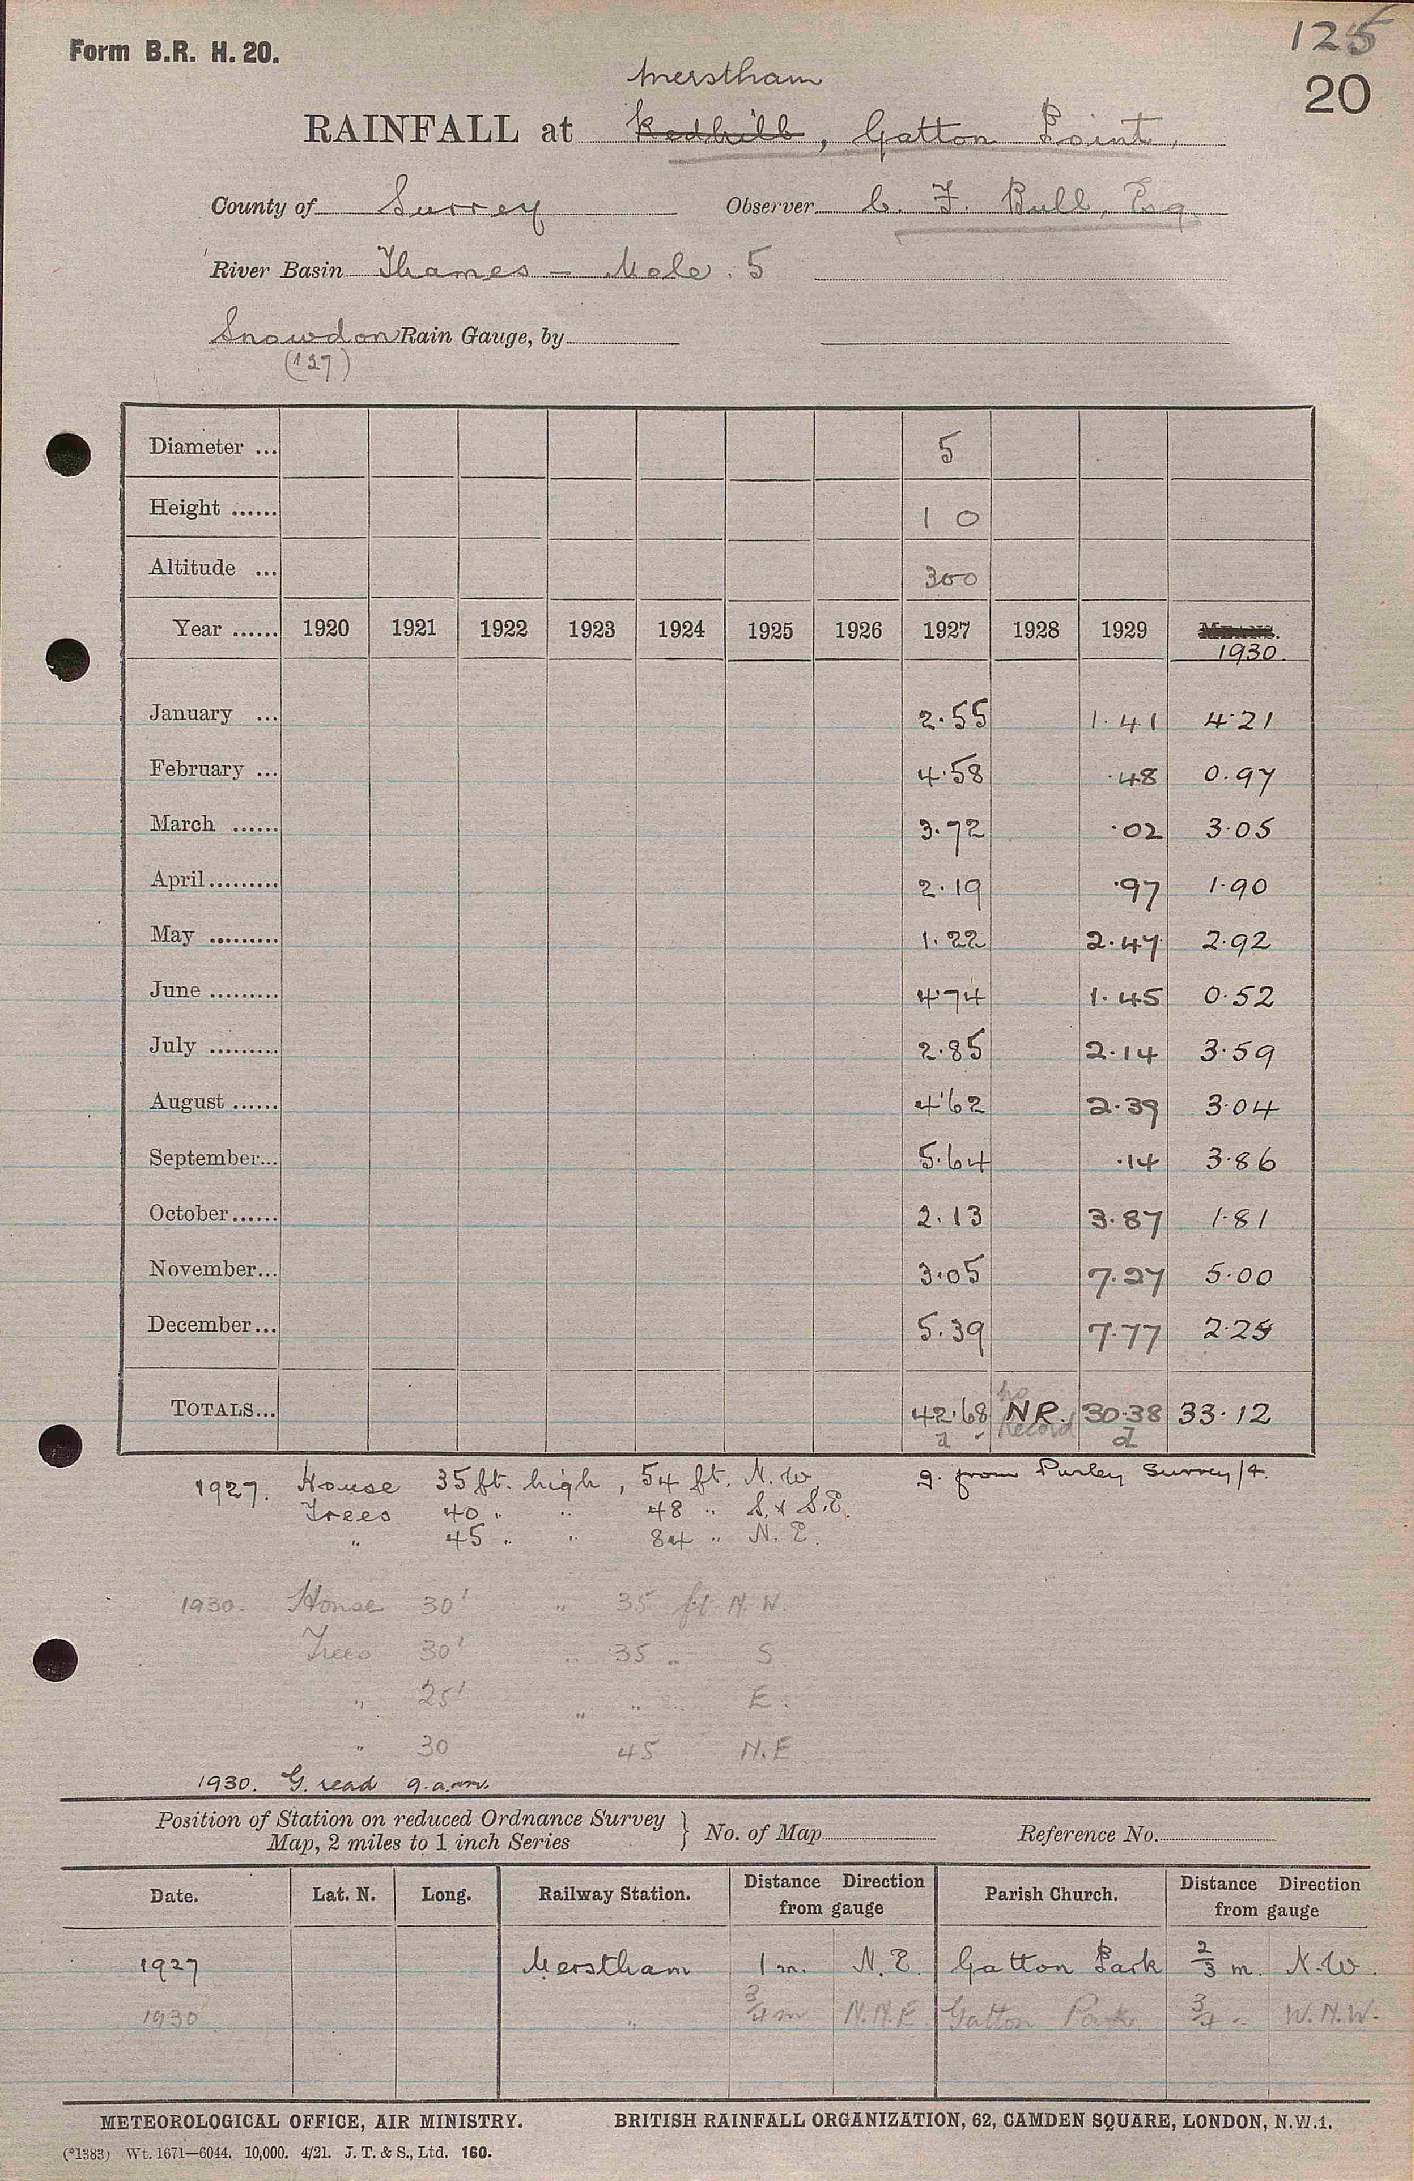 Form B.R. H. 20.
125
20
Merstham
RAINFALL at Redhill, Gatton Point,
County of Surrey Observer C. F. Bull, Esq.
River Basin Thames — Mole. 5
Snowdon Rain Gauge, by
(127)
Diameter ... 5
Height ...... 1 0
Altitude ... 300
Year ...... 1920 1921 1922 1923 1924 1925 1926 1927 1928 1929 MEANS.
1930.
January ... 2.55 1.41 4.21
February ... 4.58 .48 0.97
March ...... 3.72 .02 3.05
April ......... 2.19 .97 1.90
May ......... 1.22 2.47 2.92
June ......... 4.74 1.45 0.52
July ......... 2.85 2.14 3.59
August ...... 4.62 2.39 3.04
September... 5.64 .14 3.86
October ...... 2.13 3.87 1.81
November... 3.05 7.27 5.00
December... 5.39 7.77 2.25
no
TOTALS... 42.68 NR. 30.38 33.12
Record
1927. House 35 ft. high, 54 ft. N.W. g. from Purley Surrey/4.
Trees 40 " " 48 " S. & S.E.
" 45 " " 84 " N.E.
1930. House 30' " 35 ft N.W.
Trees 30' " 35 " S
" 25' " " E.
" 30 45 N.E
1930. G. read 9 a.m.
Position of Station on reduced Ordnance Survey
Map, 2 miles to 1 inch Series } No. of Map Reference No.
Date. Lat. N. Long. Railway Station. Distance Direction from gauge Parish Church. Distance Direction from gauge
1927 Merstham 1 m. N.E. Gatton Park 2/3 m. N.W.
1930 " 3/4 m N.N.E Gatton Park 3/4 " W.N.W.
METEOROLOGICAL OFFICE, AIR MINISTRY. BRITISH RAINFALL ORGANIZATION, 62, CAMDEN SQUARE, LONDON, N.W.1.
(*1383) Wt. 1671—6044. 10,000. 4/21. J. T. & S., Ltd. 160.